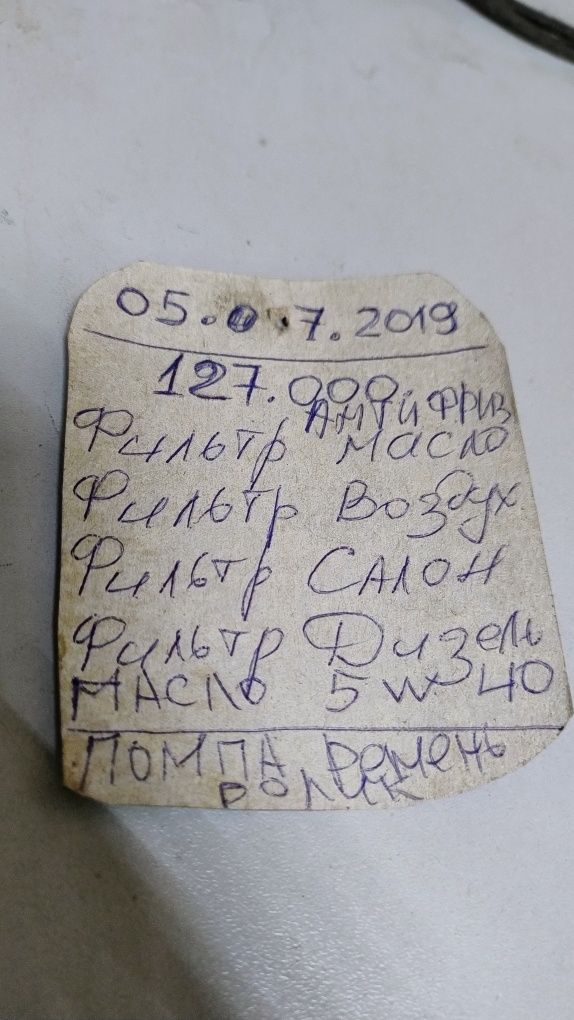 05.07.2019
127.000.
Антифриз
Фильтр масло
Фильтр Воздух
Фильтр Салон
Фильтр Дизель
Масло 5W40
Помпа Ремень
ролик